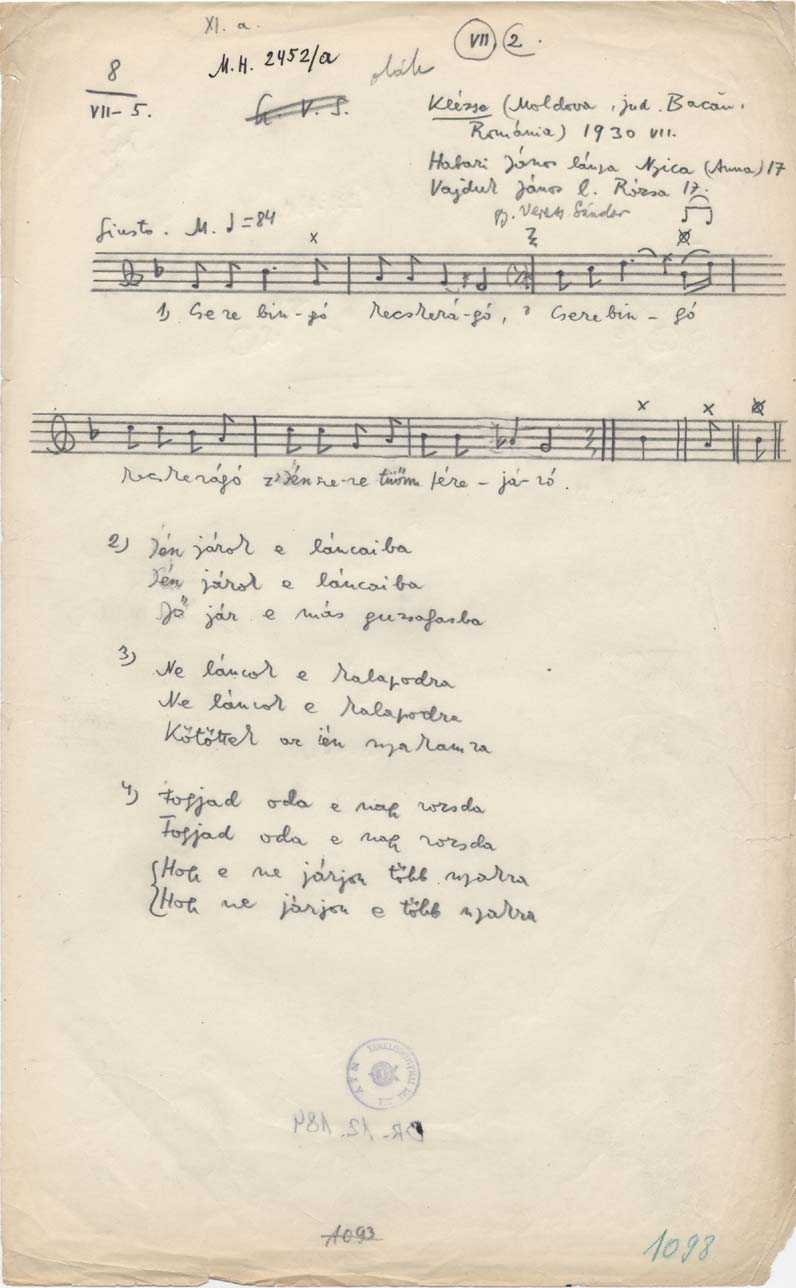 XI. a.
8
VII-5.
M.H. 2452/a
oláh
VII 2.
Klézse (Moldova, jud. Bacău,
Románia) 1930 VII.
János lánya Nyica (Anna) 17
Vajduk János l. Rózsa 17.
gy. Veress Sándor
Giusto. M. ♩=84
1) Cserebin-gó kecskerá-gó, Cserebin-gó
kecskerágó fére-já-ró.
2) Jén járok e láncaiba
Jén járok e láncaiba
Jő jár e más guzsajasba
3) Ne láncok e kalapodra
Ne láncok e kalapodra
Kötöttek az ién nyakamra
4) Fogjad oda e nagy rozsda
Fogjad oda e nagy rozsda
Hogy e ne járjon több nyakra
Hogy ne járjon e több nyakra
1093
1098